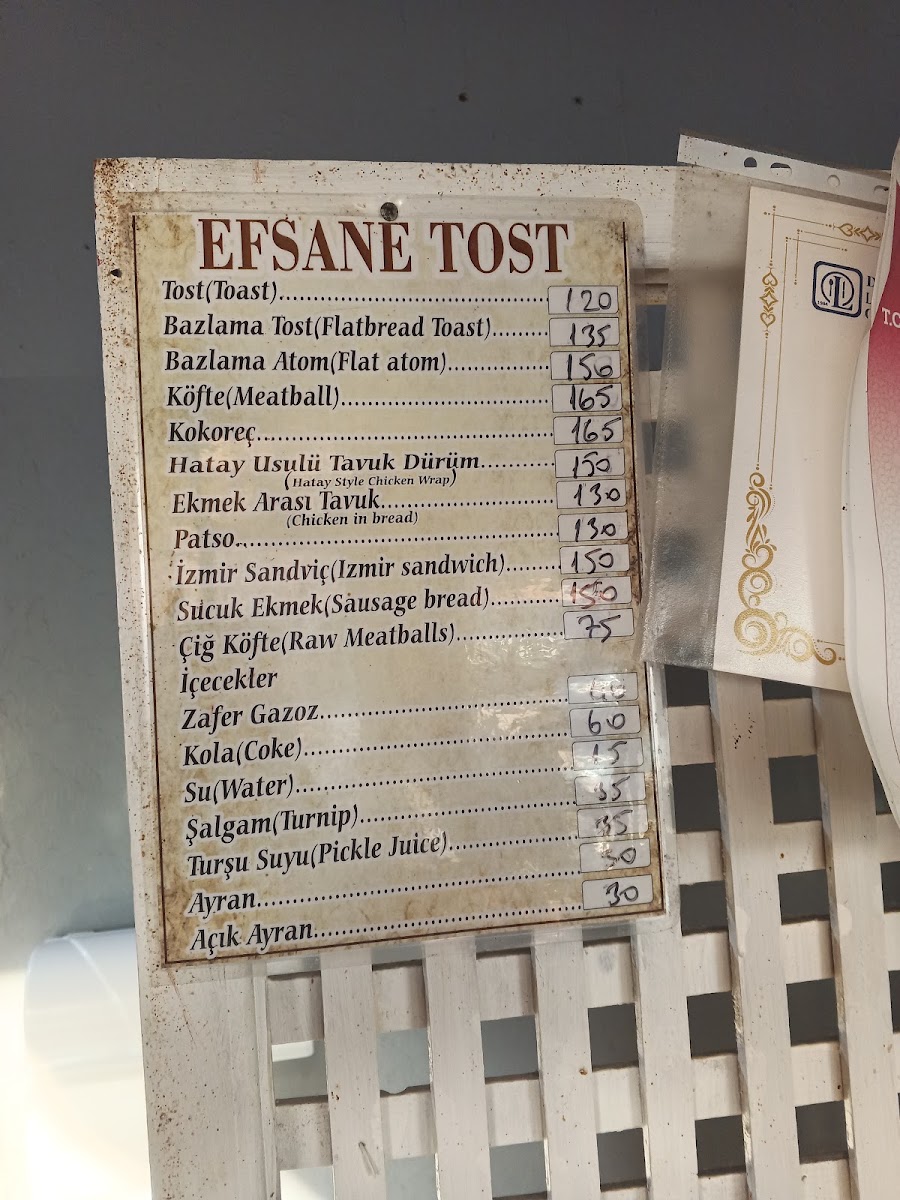 EFSANE TOST
Tost(Toast)....................................... 120
Bazlama Tost(Flatbread Toast)......... 135
Bazlama Atom(Flat atom)............... 150
Köfte(Meatball)............................... 165
Kokoreç............................................ 165
Hatay Usulü Tavuk Dürüm........... 150
(Hatay Style Chicken Wrap)
Ekmek Arası Tavuk......................... 130
(Chicken in bread)
Patso................................................ 130
İzmir Sandviç(Izmir sandwich)....... 150
Sucuk Ekmek(Sausage bread).......... 150
Çiğ Köfte(Raw Meatballs)................ 75
İçecekler
Zafer Gazoz.....................................
Kola(Coke)....................................... 60
Su(Water)......................................... 15
Şalgam(Turnip)................................ 35
Turşu Suyu(Pickle Juice)................... 35
Ayran................................................ 30
Açık Ayran........................................ 30
T.C